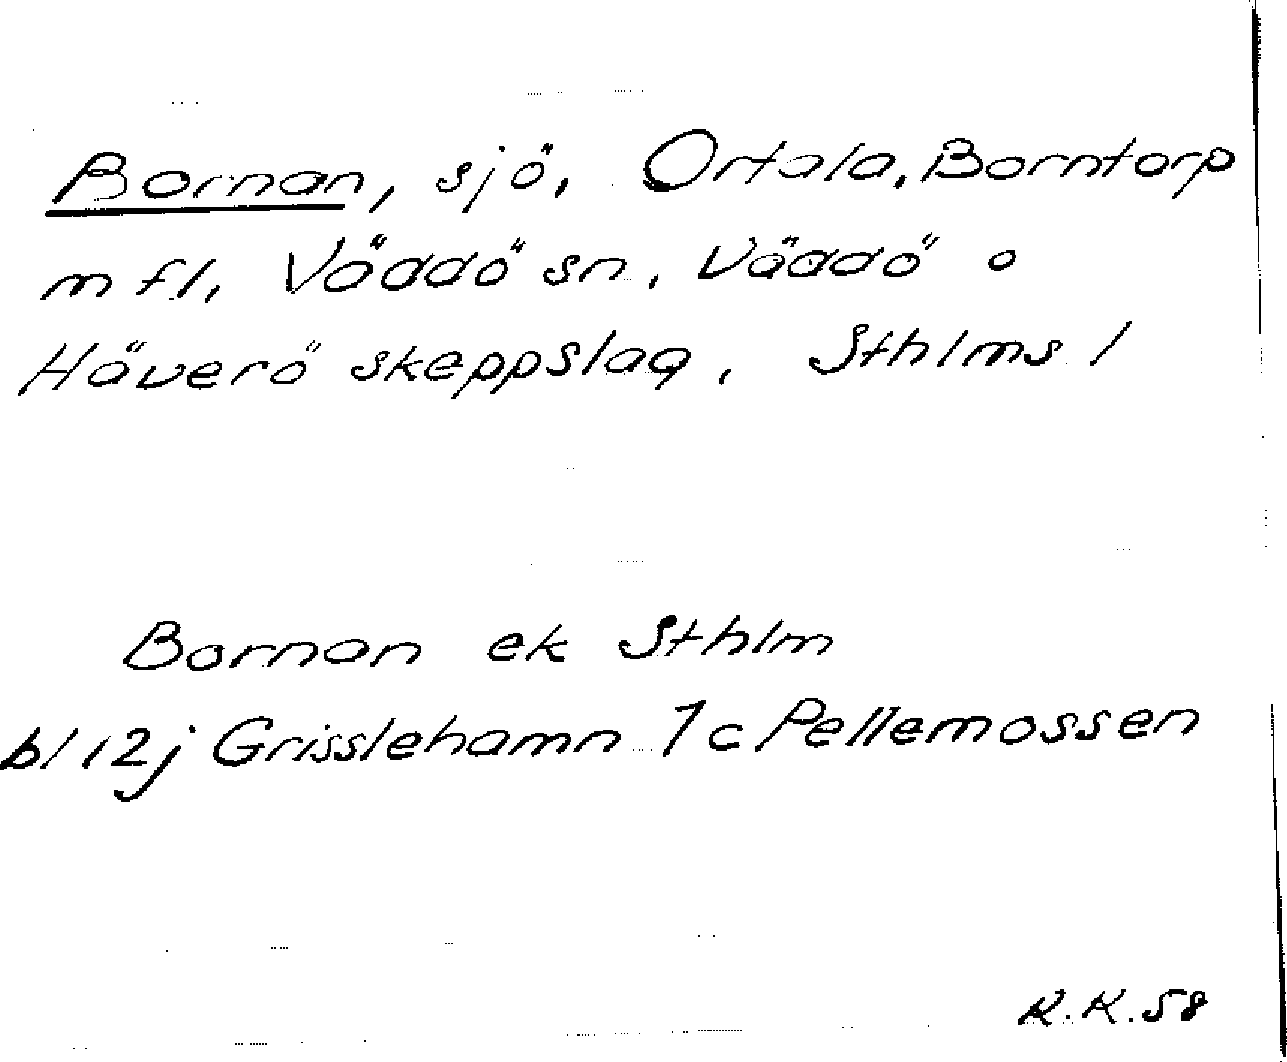 Bornan, sjö, Ortala, Borntorp
m fl, Väddö sn, Väddö o
Häverö skeppslag, Sthlms l
Bornan ek Sthlm
bl 12j Grisslehamn 7c Pellemossen
R.K.58